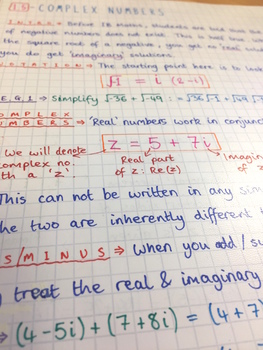 1.5 - COMPLEX NUMBERS
INTRO → Before IB Maths, students are told that the
of negative numbers does not exist. This is not true
the square root of a negative, you get no 'real'
you do get 'imaginary' solutions.
NOTATION → The starting point here is to
√-1 = i
E.G.1 → Simplify √-36 + √-49 : = √36 √-1 + √49
COMPLEX
NUMBERS → 'Real' numbers work in conjunc
We will denote
complex no.
with a 'z'.
z = 5 + 7i
Real part
of z : Re(z)
Imagin
of z
This can not be written in any sim
the two are inherently different
S/MINUS → When you add / su
treat the real & imaginary
→ (4-5i) + (7+8i) = (4+7)